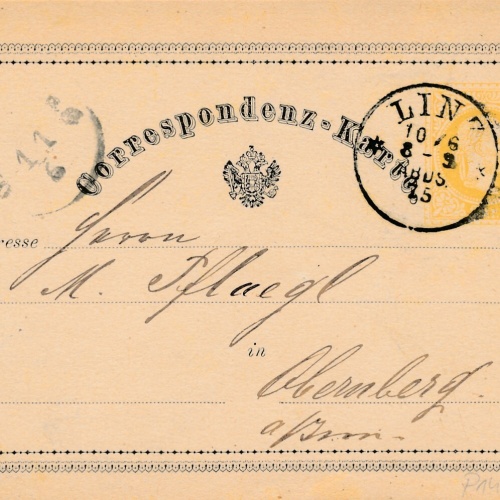 Correspondenz-Karte
LINZ
10 6
8 - 9
ABDS.
resse Herrn
M. Pflaegl
in
Obernberg
a/Inn.